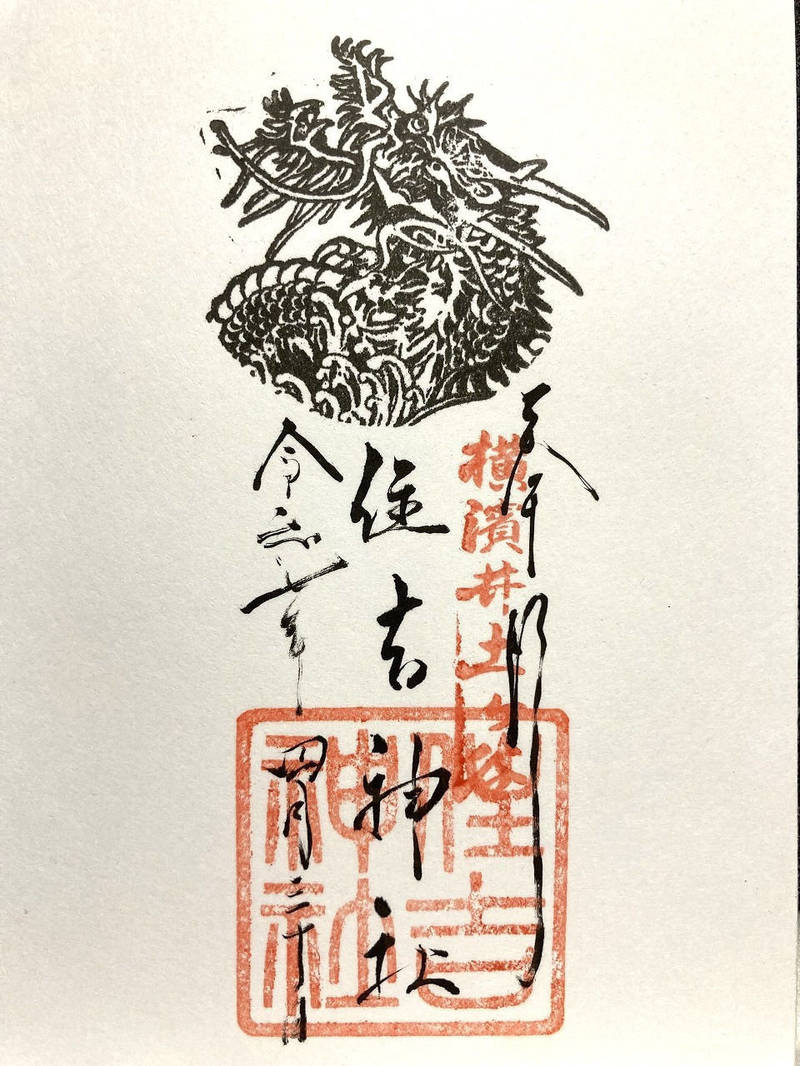 奉拝
横濱井土ヶ谷
住吉神社
令和七年四月三十日
住吉
神社